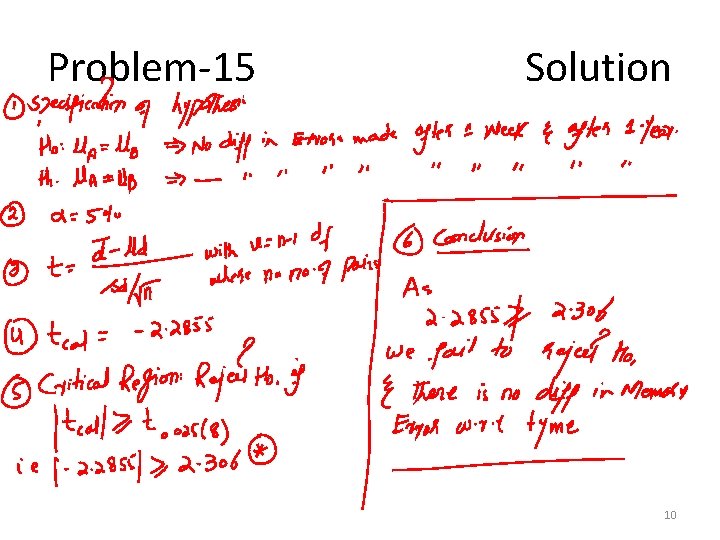 Problem-15 Solution
① Specification of hypothesis
H₀: μA = μB ⇒ No diff in Errors made after 1 week & after 1-Year.
H₁: μA ≠ μB ⇒ — " " " " " " " " "
② α = 5%
③ t = (d̄ - μd) / (sd/√n) with v = n-1 df
where n = no. of pairs
④ tcal = -2.2855
⑤ Critical Region: Reject H₀. if
|tcal| ≥ t.025(8)
i e |-2.2855| ≥ 2.306 ⊛
⑥ Conclusion
As
2.2855 ≱ 2.306
we fail to reject H₀,
& there is no diff in Memory
Errors w.r.t tyme
10